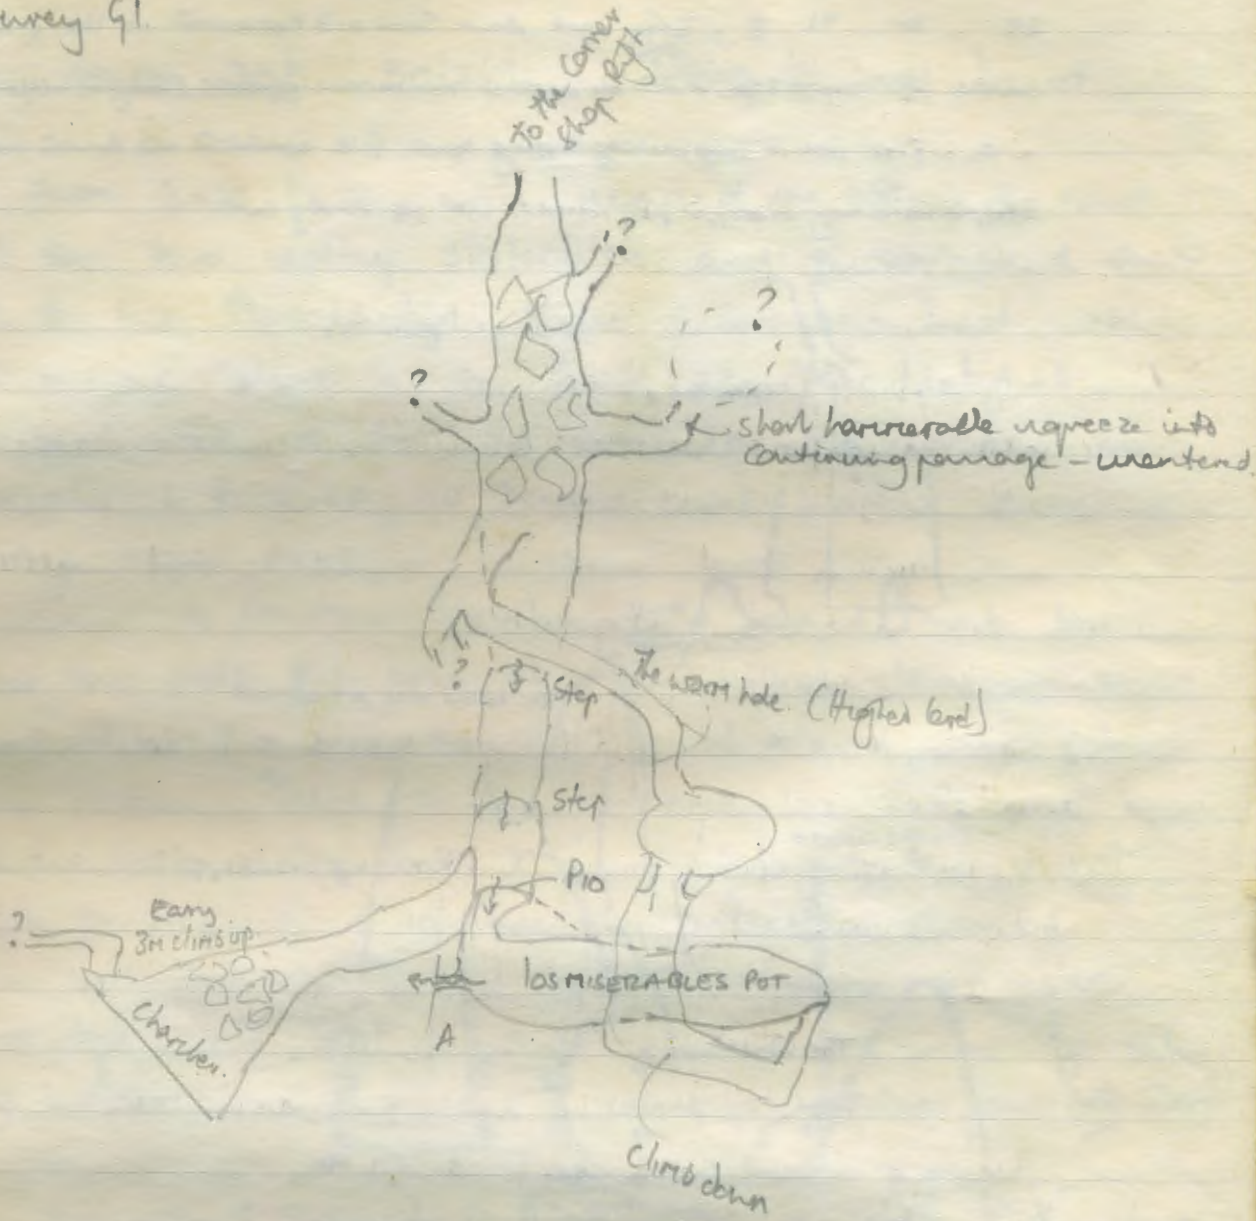 urvey G1.
To the Corner
Shop Rift
?
?
?
short hammerable squeeze into
continuing passage - unentered.
?
Step
The worm hole. (Higher level)
Step
P10
Easy
3m climb up
?
Chamber.
LOS MISERABLES POT
A
Climb down